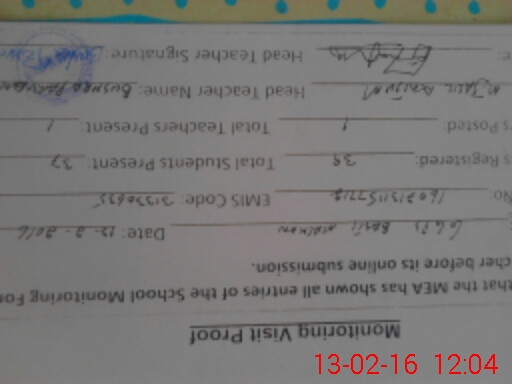 Monitoring Visit Proof
that the MEA has shown all entries of the School Monitoring For
cher before its online submission.
GGPS BASTI Date: 13-2-2016
No: EMIS Code: 31330635
s Registered: 39 Total Students Present: 37
rs Posted: 1 Total Teachers Present: 1
M. JALIL ANJUM Head Teacher Name: BUSHRA PARVEEN
e: Head Teacher Signature:
13-02-16 12:04